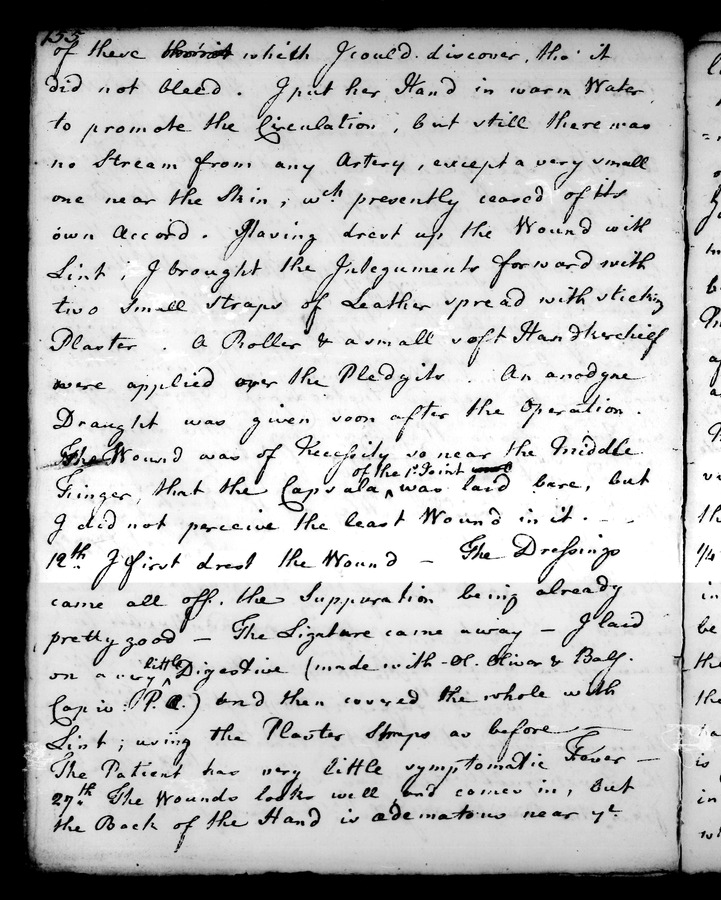 155
of these which I could discover, tho' it
did not bleed. I put her Hand in warm Water
to promote the Circulation, but still there was
no Stream from any Artery, except a very small
one near the Skin; wch presently ceased of its
own Accord. Having drest up the Wound with
Lint; I brought the Integuments forward with
two small straps of Leather spread with sticking
Plaster. A Roller & a small soft Handkerchief
were applied over the Pledgits. An anodyne
Draught was given soon after the Operation.
The Wound was of Necessity so near the Middle
Finger, that the Capsula of the 1st Joint was laid bare, but
I did not perceive the least Wound in it. -
12th. I first drest the Wound - The Dressings
came all off, the Suppuration being already
pretty good - The Ligature came away - I laid
on a very little Digestive (made with Ol. Olivar & Bals.
Capiv: P. Æ.) and then covered the whole with
Lint; using the Plaster Straps as before -
The Patient has very little symptomatic Fever -
27th. The Wounds looks well and comes in, but
the Back of the Hand is œdematous near ye